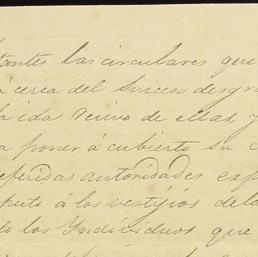 tantes las circulares que
á cerca del Suceso desgra
la ida Verivo de ellas, y
a poner á cubierto su c
eferidas autoridades exp
hute á los vestijios dela
to los Yndividuos que